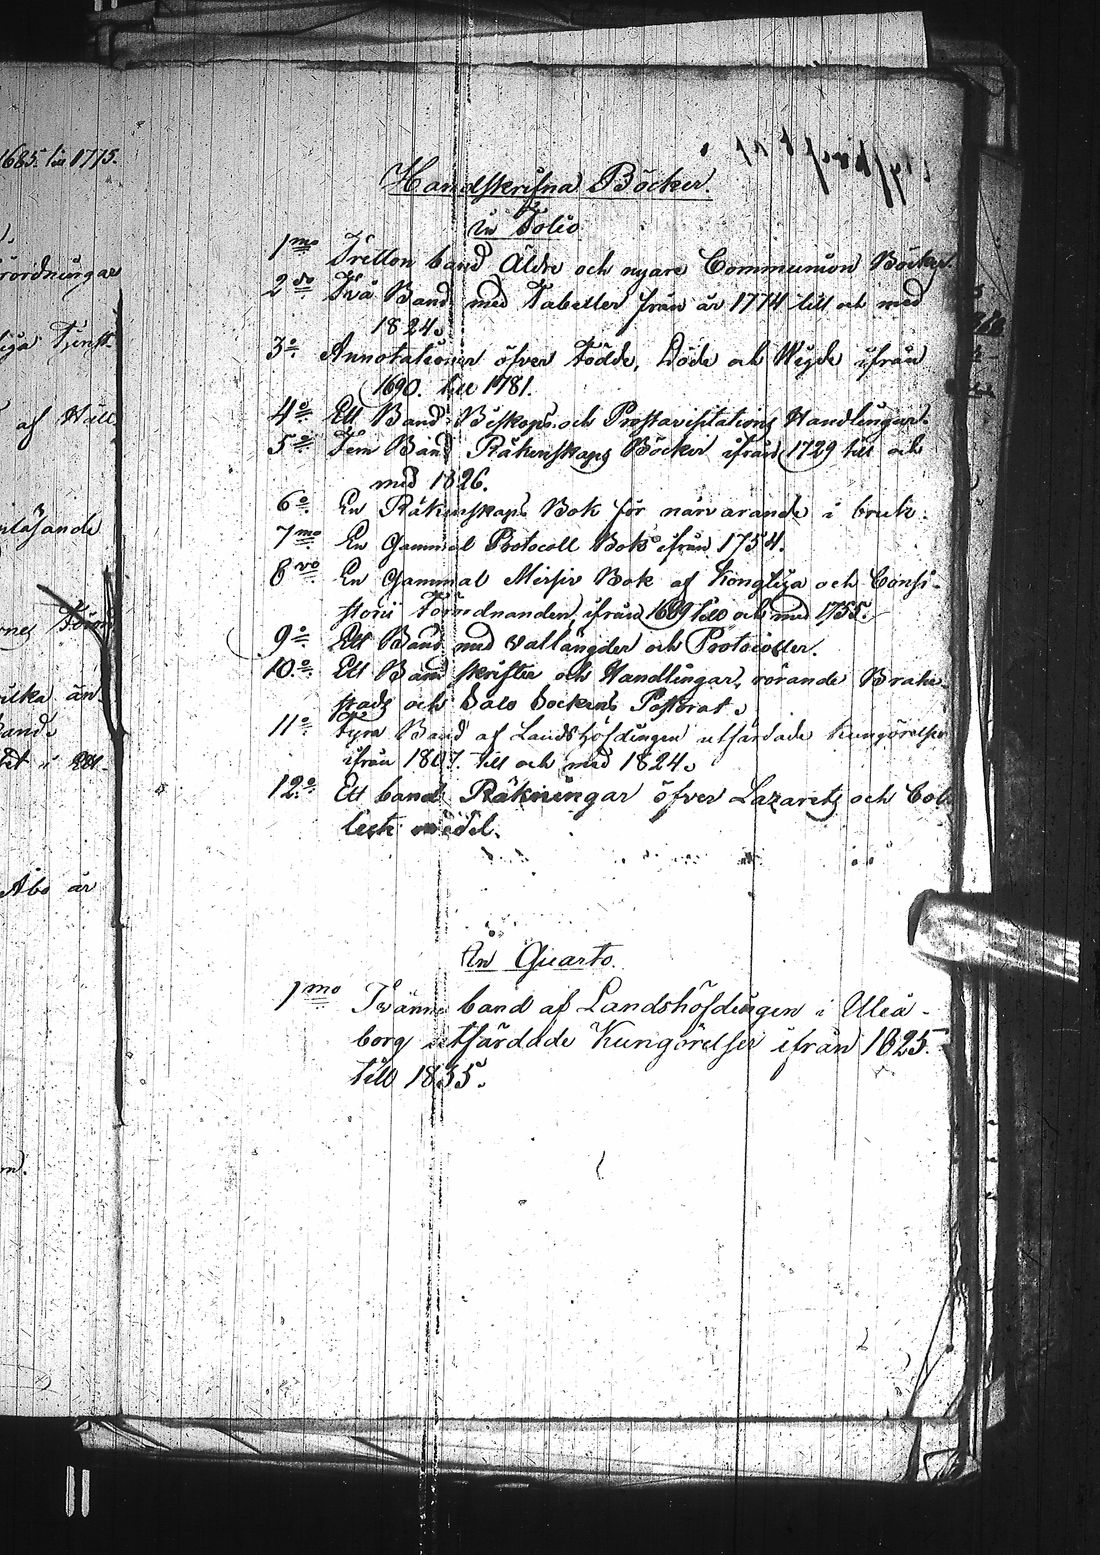 1685. till 1775.
Handskrifna Böcker.
in Folio
1mo Tretton band Äldre och nyare Communion Böcker.
2do Två Band med Tabeller från år 1774 till och med
1824.
3o Annotationer öfver Födde, Döde och Wigde ifrån
1690. till 1781.
4o Ett Band Biskops och Prostavisitations Handlingar.
5o Fem Band Räkenskaps Böcker ifrån 1729 till och
med 1826.
6o En Räkenskaps Bok för närvarande i bruk.
7mo En Gammal Protocoll Bok ifrån 1754.
8vo En Gammal Missiv Bok af Kongliga och Consi-
storii Förordnanden, ifrån 1689 till och med 1755.
9o Ett Band med vallängder och Protocoller.
10.o Ett Band skrifter och Handlingar, rörande Brahe-
stads och Salo Sockens Pastorat.
11o Fyra Band af Landshöfdingen utfärdade Kungörelser
ifrån 1807. till och med 1824.
12.o Ett band Räkningar öfver Lazaretts och Col-
lect medel.
In Quarto.
1mo Tvänne band af Landshöfdingen i Uleå-
borg utfärdade Kungörelser ifrån 1825.
till 1835.
rordningar
af
Åbo år